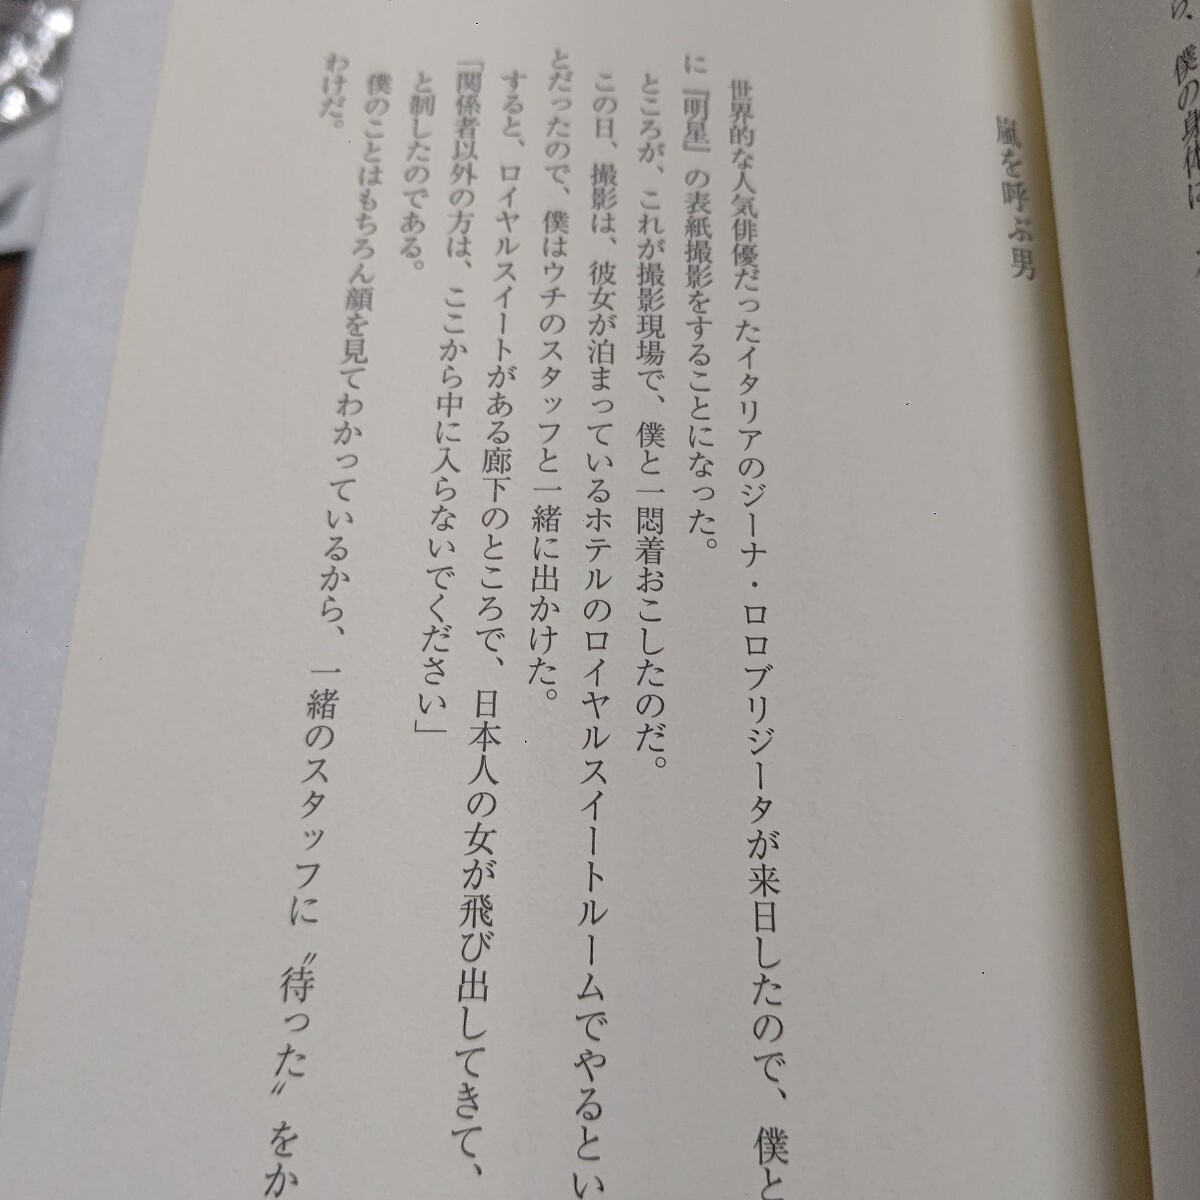 僕の身体は
嵐を呼ぶ男
世界的な人気俳優だったイタリアのジーナ・ロロブリジータが来日したので、僕と
に『明星』の表紙撮影をすることになった。
ところが、これが撮影現場で、僕と一悶着おこしたのだ。
この日、撮影は、彼女が泊まっているホテルのロイヤルスイートルームでやるとい
とだったので、僕はウチのスタッフと一緒に出かけた。
すると、ロイヤルスイートがある廊下のところで、日本人の女が飛び出してきて、
「関係者以外の方は、ここから中に入らないでください」
と制したのである。
僕のことはもちろん顔を見てわかっているから、一緒のスタッフに〝待った〟をか
わけだ。